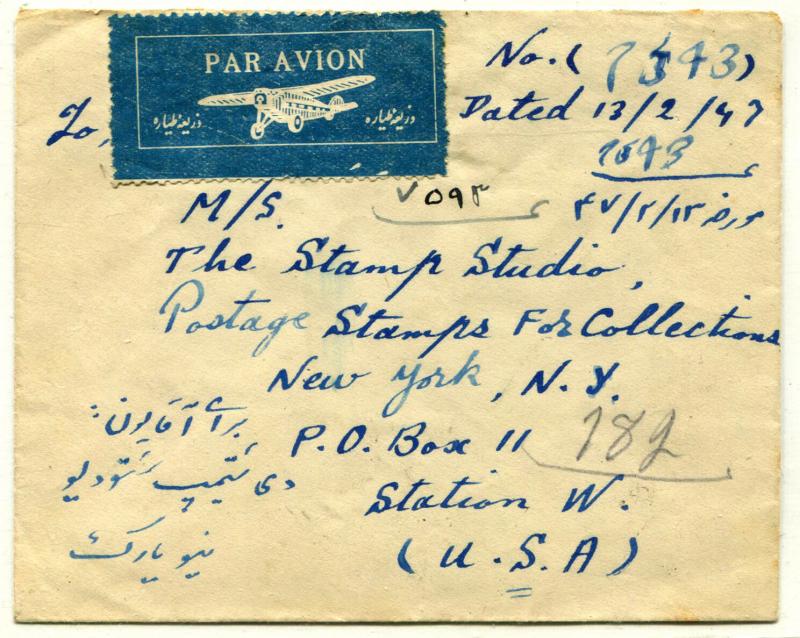 PAR AVION
ذریعهٔ طیاره ذریعهٔ طیاره
No. (7543)
Dated 13/2/47
To,
M/S.
۴۷/۲/۱۳
The Stamp Studio,
Postage Stamps For Collections
New York, N.Y.
P.O. Box 11
182
Station W.
(U.S.A)
برای آقایون:
دی ستیمپ ستودیو
نیو یارک